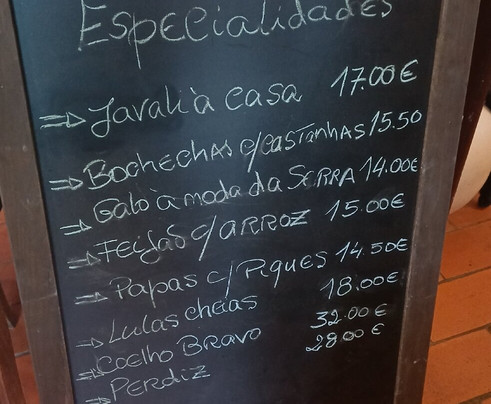 Especialidades
Javali à casa 17.00€
Bochechas c/castanhas 15.50
Galo à moda da SERRA 14.00€
Feijão c/ARROZ 15.00€
Papas c/Piques 14.50€
Lulas cheias 18.00€
Coelho BRAVO 32.00€
PERDIZ 28.00€